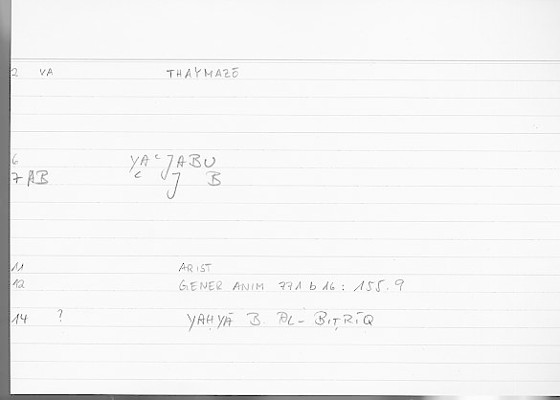 2 VA THAYMAZĒ
6 YAʿJABU
7 AB ʿ J B
11 ARIST
12 GENER ANIM 771 b 16 : 155.9
14 ? YAḤYĀ B. AL-BIṬRĪQ